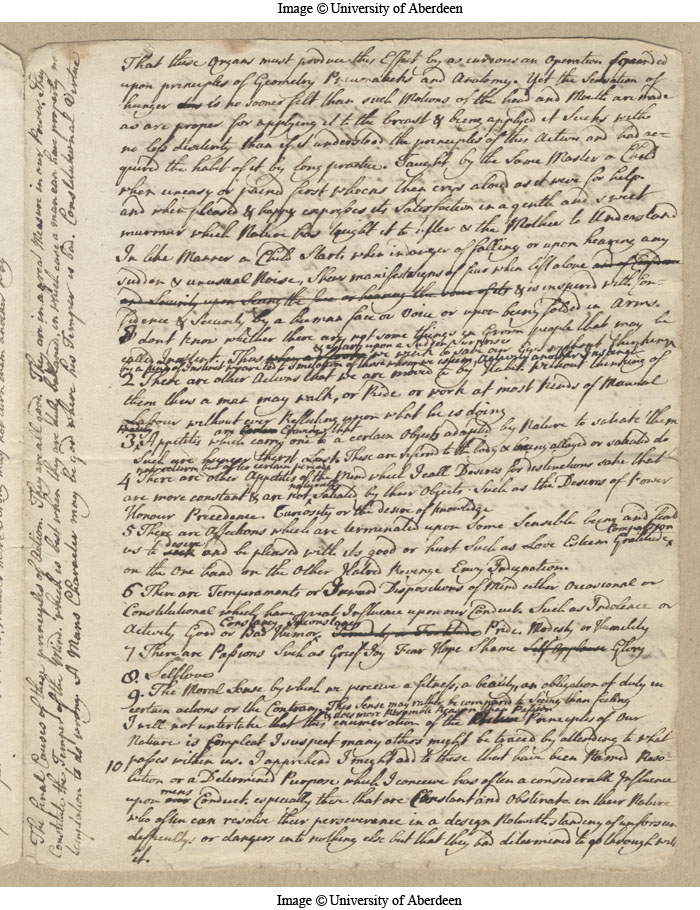 Image © University of Aberdeen
That these Organs must produce this Effect by as curious an Operation founded
upon principles of Geometry Pneumaticks and Anatomy. Yet the Sensation of
hunger is no sooner felt than such Motions of the head and Mouth are made
as are proper for applying it to the breast & being applyed it Sucks with
no less dexterity than if it understood the principles of this Action and had ac-
quired the habit of it by long practice. Taught by the Same Master a Child
when uneasy or paind first then crys aloud as it were for help
and when pleased & happy expresses its Satisfaction in a gentle and sweet
murmur which Nature has taught it to utter & the Mother to Understand
In like Manner a Child Starts when in danger of falling or upon hearing any
sudden & unusual Noise, Shews manifestations of fear when left alone
and Security upon Seeing the face or hearing the voice of its & is inspired with Con-
fidence & Security by a human face or Voice or upon being folded in Arms.
I dont know whether there are not some things in Grown people that may be
called Instinct. Thus we wink to save our Eyes without thinking
& upon a Sudden Surprise
by a kind of Instinct
2 There are other Actions that we are moved to by Habit without thinking of
them thus a man may walk, or Ride or work at most kinds of Manual
Labour without ever Reflecting upon what he is doing
3. Appetites which carry one to a certain Object adapted by Nature to satiate them
Such are hunger thirst Lust. These are referred to the body & being allayed or satiated do
not return but after certain periods
4 There are other Appetites of the Mind which I call Desires for distinctions sake that
are more constant & are not Satiated by their Objects. Such as the Desires of Power
Honour Precedence. Curiosity or the desire of knowledge
5 There are Affections which are terminated upon Some Sensible being and lead
us to desire & and be pleased with its good or hurt Such as Love Esteem Gratitude
Compassion
on the One hand on the Other Hatred Revenge Envy Indignation.
6 There are Temperaments or Inward Dispositions of Mind either Occasional or
Constitutional which have great Influence upon our Conduct. Such as Indolence or
Constancy Inconstancy
Activity Good or Bad Humor. Pride, Modesty or Humility
7 There are Passions Such as Grief Joy Fear Hope Shame Self Applause Glory
8. Selflove
9. The Moral Sense by which we perceive a fitness, a beauty, an obligation of duty in
certain actions or the Contrary. This Sense may rather be compared to Seeing than feeling
& does more resemble Reason than Passion
I will not undertake that this enumeration of the Principles of Our
Nature is Compleat I suspect many others might be traced by attending to what
passes within us. I apprehend I might add to those that have been Named Reso-
10
lution or a Determined Purpose which I conceive has often a considerable Influence
upon mens Conduct. especially those that are Constant and Obstinate in their Nature
who often can resolve their perseverance in a design Notwithstanding of unforseen
difficultys or dangers into nothing else but that they had determined to go through with
it.
The final Causes of these principles of Action. They are all good. They are in a great Measure in our Power. They
Constitute the Temper of the Mind. which is best when they are well ballanced, in which case a man can have properly no
temptation to do wrong. A Mans Character may be good where his Temper is bad. Constitutional Virtue
Image © University of Aberdeen